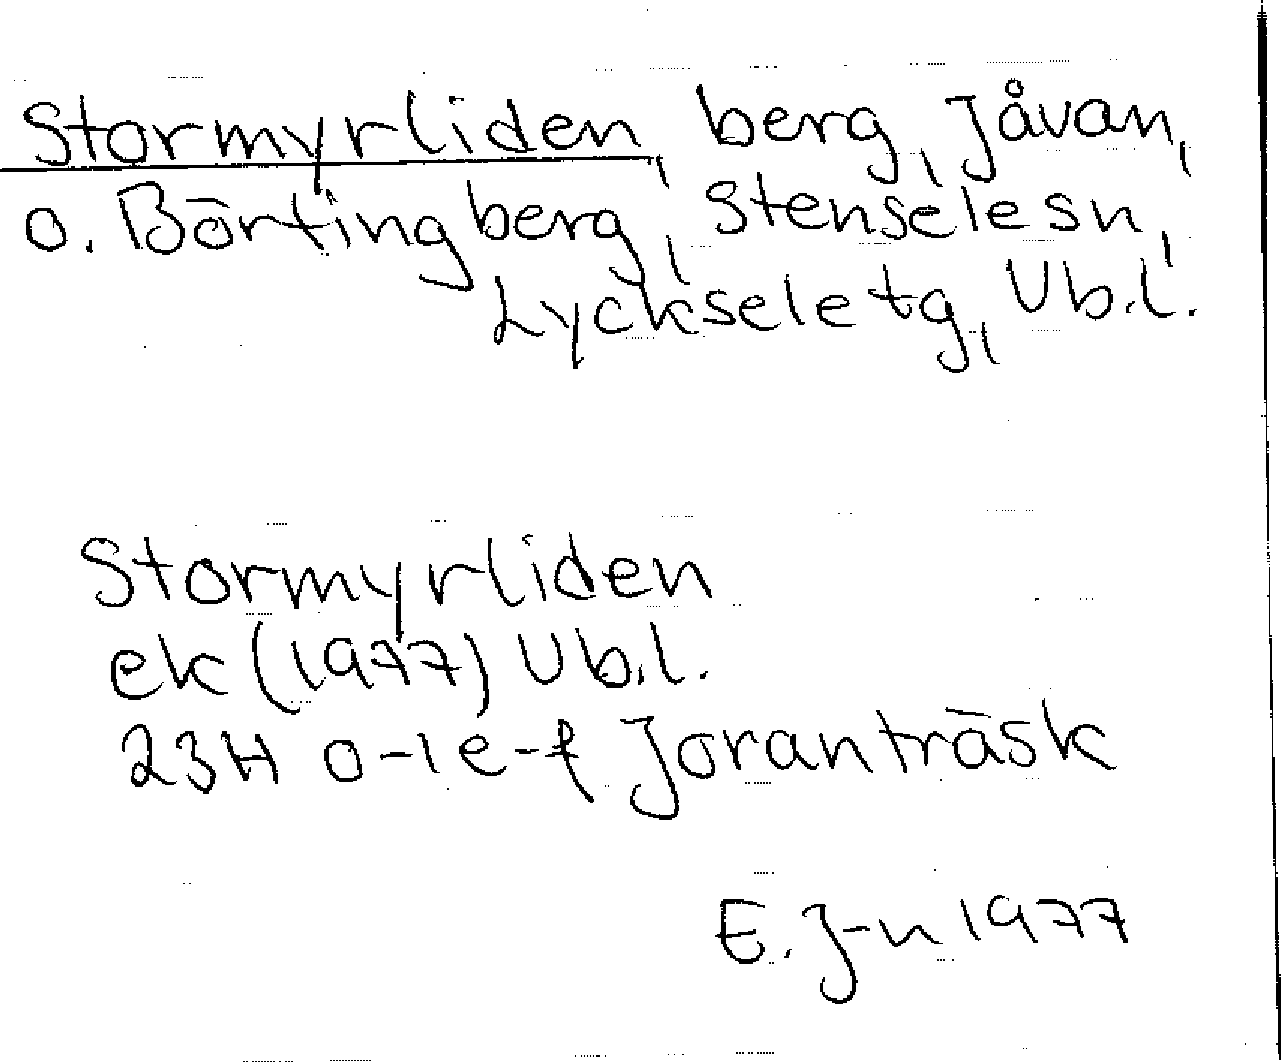 Stormyrliden, berg, Jåvan,
o. Börtingberg, Stenselesn,
Lyckseletg, Vb.l.
Stormyrliden
ek (1977) Vb.l.
23H 0-1e-f Joranträsk
E. J-n 1977